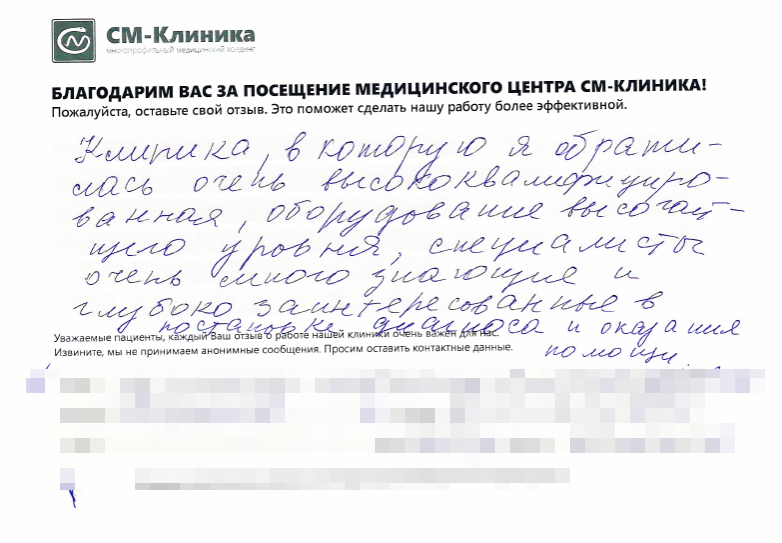 СМ-Клиника
многопрофильный медицинский холдинг
БЛАГОДАРИМ ВАС ЗА ПОСЕЩЕНИЕ МЕДИЦИНСКОГО ЦЕНТРА СМ-КЛИНИКА!
Пожалуйста, оставьте свой отзыв. Это поможет сделать нашу работу более эффективной.
Клиника, в которую я обрати-
лась очень высококвалифициро-
ванная, оборудование высочай-
щего уровня, специалисты
очень много знающие и
глубоко заинтересованные в
постановке диагноса и оказания
помощи
Уважаемые пациенты, каждый Ваш отзыв о работе нашей клиники очень важен для нас.
Извините, мы не принимаем анонимные сообщения. Просим оставить контактные данные.